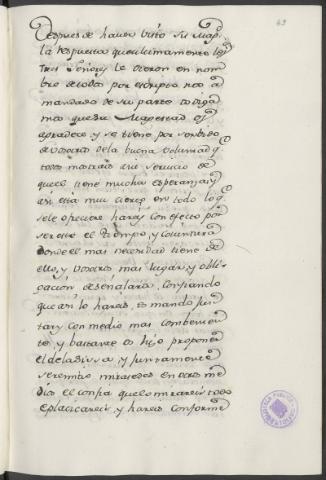 69
Despues de haver visto Su Mag.d
la respuesta que ultimamente los
tres Señores le dieron en nom
bre de todos por escripto nos a
mandado de su parte os diga
mos que Su Magestad os
agradece y se tiene por servido
de vosotros de la buena voluntad q
todos mostrais a su servicio de
que el tiene mucha esperanza y
asi esta muy cierto en todo lo q
se le ofreciere hareis con efecto por
ser este el tiempo, y coyuntura
donde el mas necesidad tiene de
ello, y vosotros mas lugar, y obli
gacion de señalaria, confiando
que asi lo hareis os mando jun
tar y con medio mas combenien
te, y bastante os hijo proponer
el de la sissa, y juntamente
se remitio miraredes en otros me
dios el confia que lo mirareis todo
e platicareis y hareis conforme